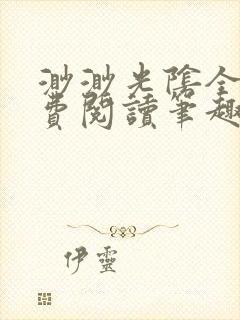 渺渺光陰全
費閱讀筆趣
伊靈